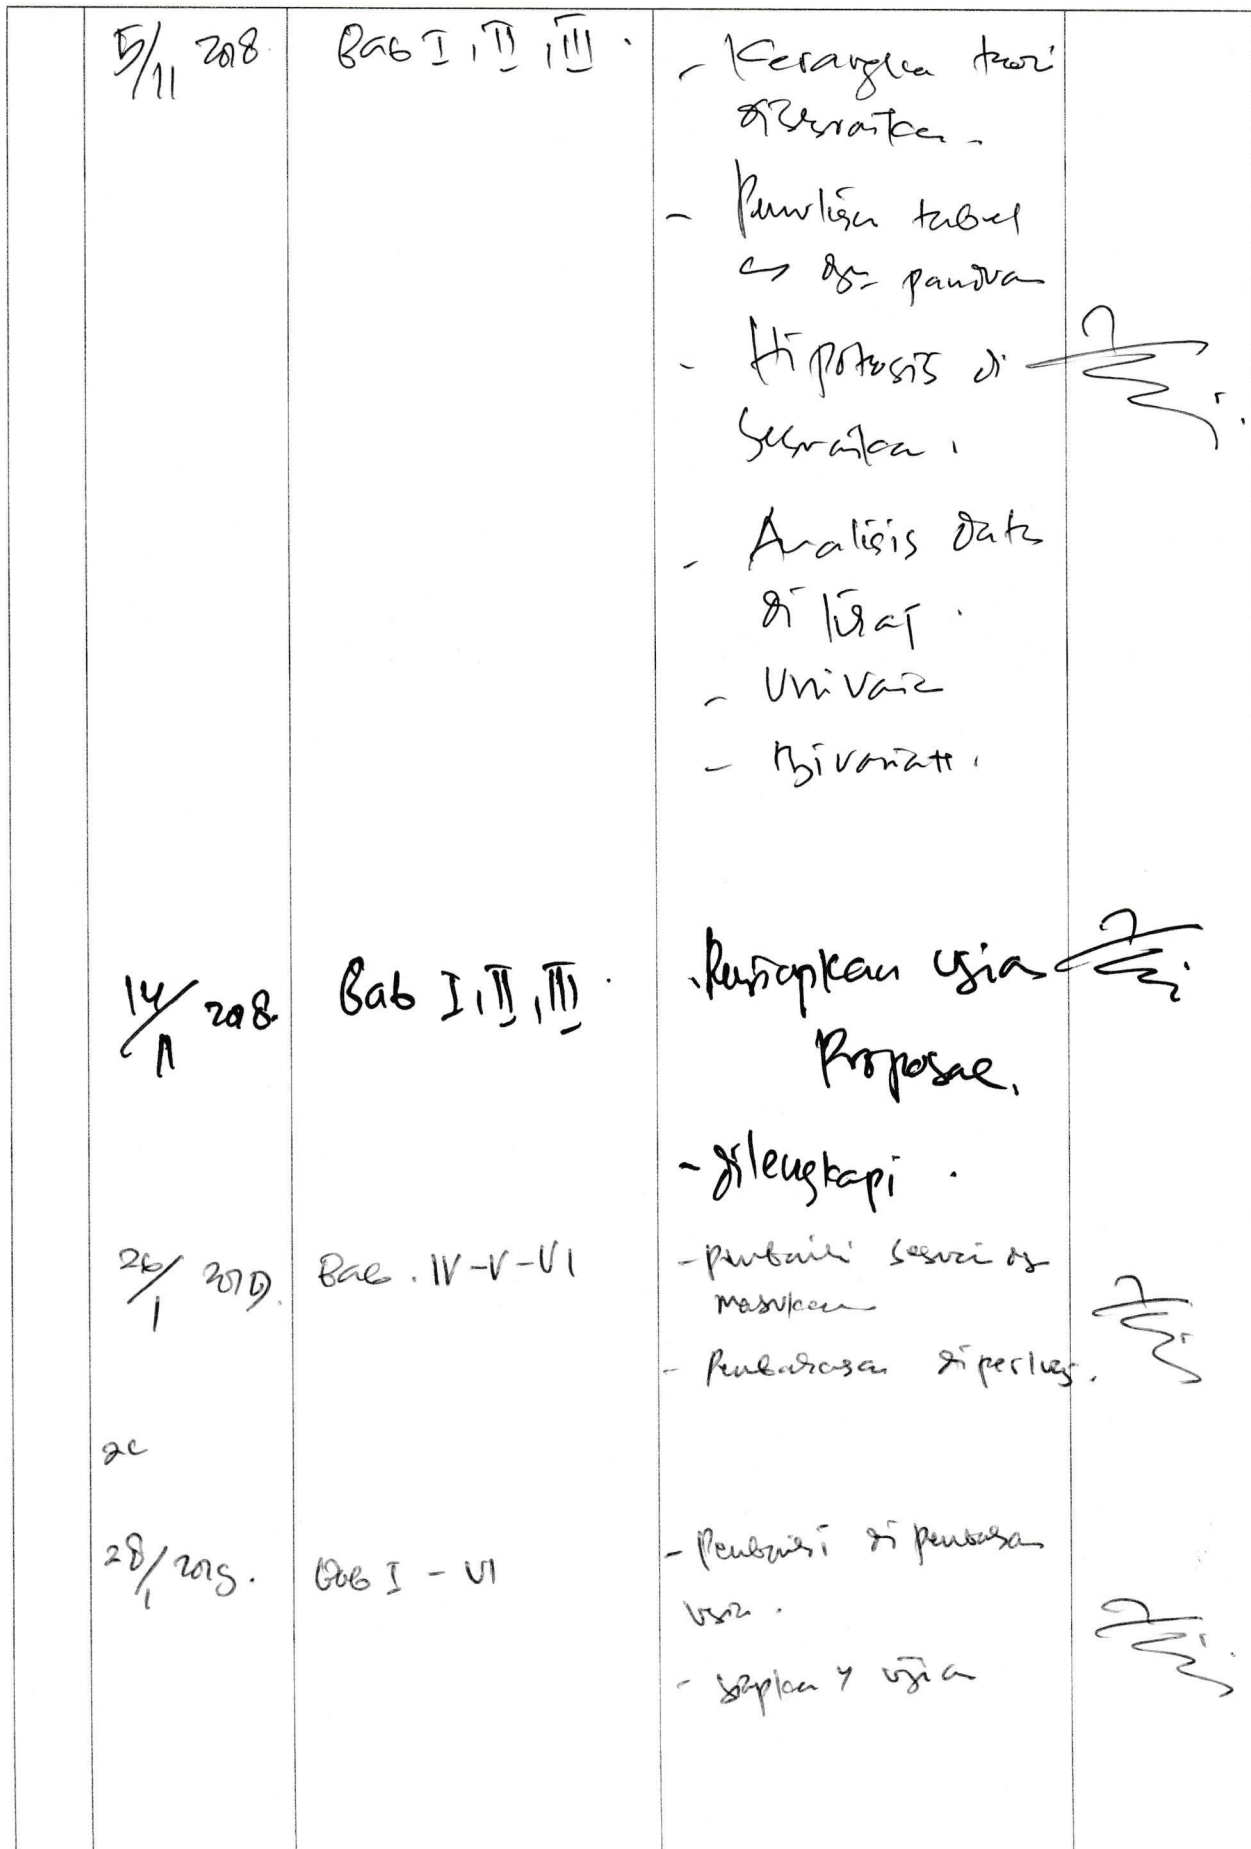 5/11 2018 Bab I, II, III. - Kerangka teori
disesuaikan -
- Penulisan tabel
panduan
- Hipotesis di
sesuaikan.
- Analisis data
di
- Univariat
- Bivariatt.
14/11 2018. Bab I, II, III. Persiapkan ujian
Proposal.
- dilengkapi.
26/1 2019. Bab. IV-V-VI - perbaiki sesuai dg
masukan
- Pembahasan diperluas.
28/1 2019. Bab I - VI - Perbaiki di pembahasan
usia.
- siapkan ujian